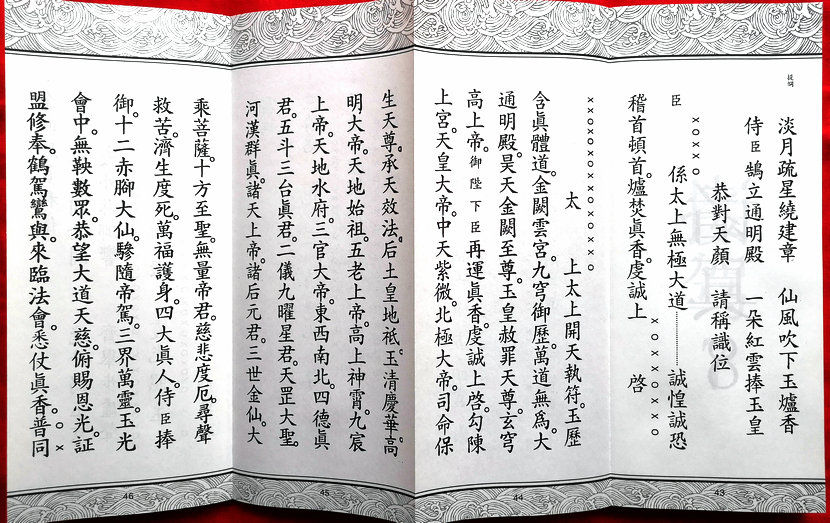 提綱
淡月疏星繞建章　仙風吹下玉爐香
侍臣鵠立通明殿　一朵紅雲捧玉皇
恭對天顏　請稱識位
xoxxo
臣　係太上無極大道…………誠惶誠恐
xoxxoxxo
稽首頓首。爐焚眞香。虔誠上　啓
xxoxoxxoxxoxxxo
太　上太上開天執符。玉歷
含眞體道。金闕雲宮。九穹御歷。萬道無爲。大
通明殿。昊天金闕至尊。玉皇赦罪天尊。玄穹
高上帝。御陛下臣再運眞香。虔誠上啓。勾陳
上宮。天皇大帝。中天紫微。北極大帝。司命保
生天尊。承天效法。后土皇地祗。玉清慶華。高
明大帝。天地始祖。五老上帝。高上神霄。九宸
上帝。天地水府。三官大帝。東西南北。四德眞
君。五斗三台眞君。二儀九曜星君。天罡大聖。
河漢群眞。諸天上帝。諸后元君。三世金仙。大
乘菩薩。十方至聖。無量帝君。慈悲度厄。尋聲
救苦。濟生度死。萬福護身。四大眞人。侍臣捧
御。十二赤腳大仙。驂隨帝駕。三界萬靈。玉光
會中。無鞅數眾。恭望大道天慈。俯賜恩光。証
盟修奉。鶴駕鸞輿。來臨法會。悉仗眞香。普同
ox
43
44
45
46